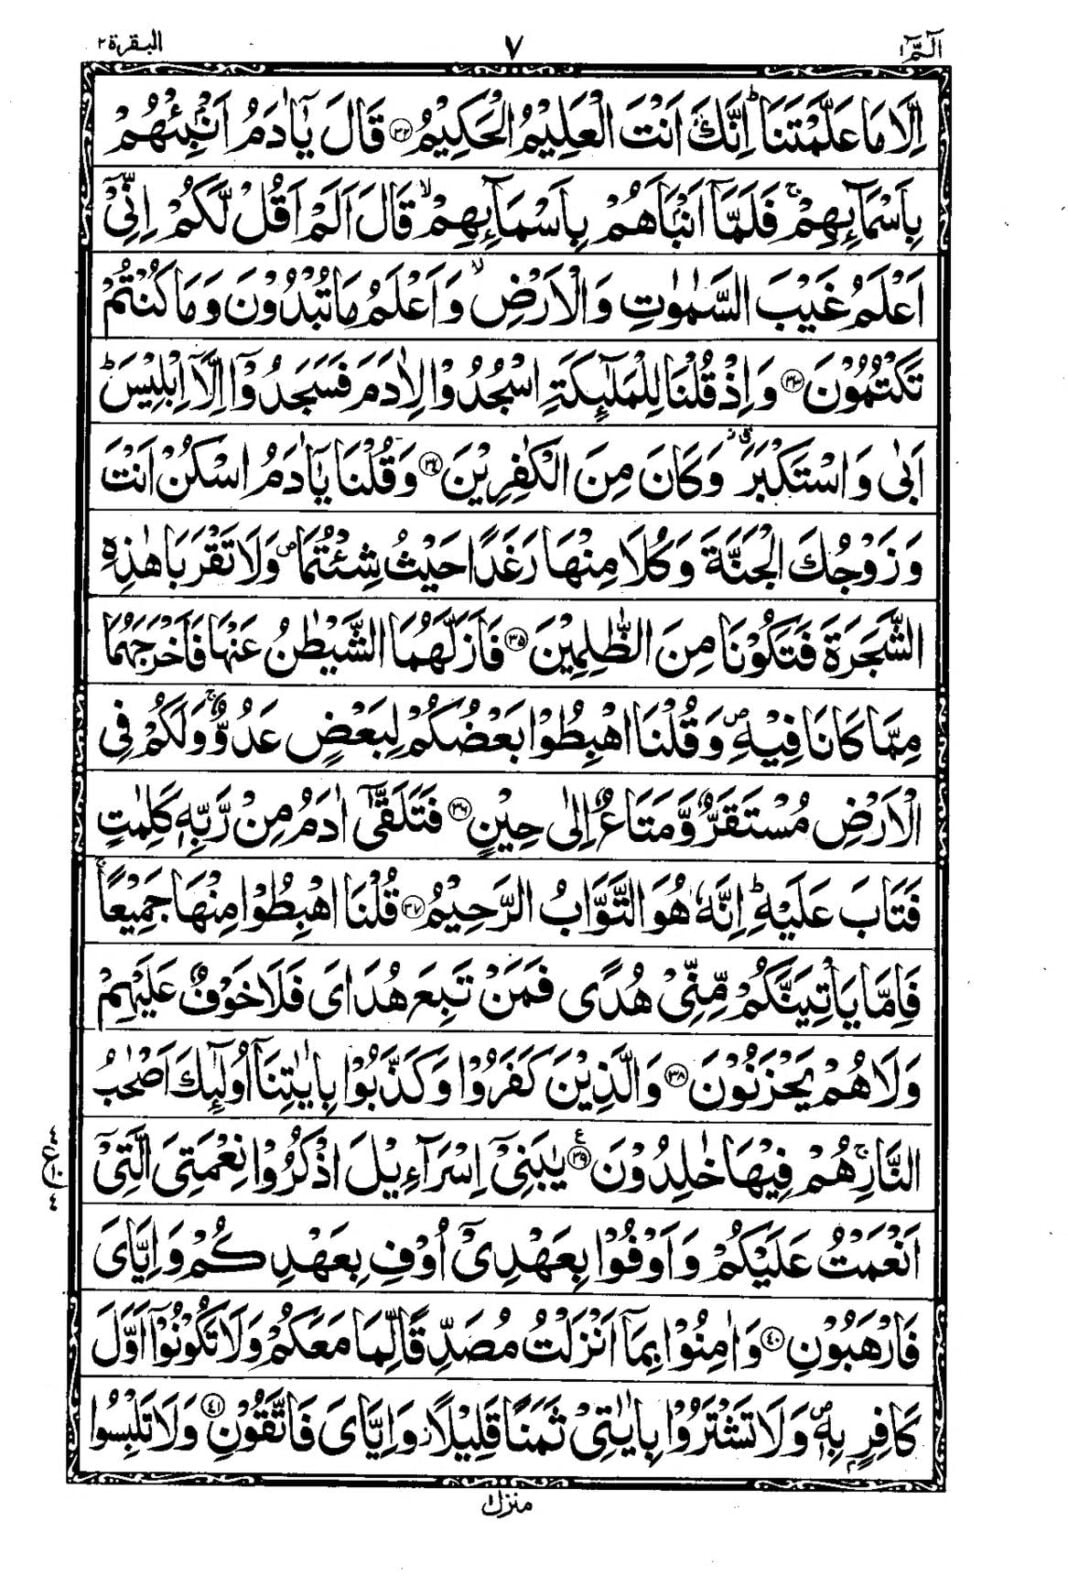 الٓمّٓ ۱
۷
البقرة ۲
اِلَّا مَا عَلَّمْتَنَا ؕ اِنَّكَ اَنْتَ الْعَلِيْمُ الْحَكِيْمُ ﴿۳۲﴾ قَالَ يٰٓاٰدَمُ اَنْۢبِئْهُمْ
بِاَسْمَآئِهِمْ ۚ فَلَمَّآ اَنْۢبَاَهُمْ بِاَسْمَآئِهِمْ ۙ قَالَ اَلَمْ اَقُلْ لَّكُمْ اِنِّيْٓ
اَعْلَمُ غَيْبَ السَّمٰوٰتِ وَالْاَرْضِ ۙ وَاَعْلَمُ مَا تُبْدُوْنَ وَمَا كُنْتُمْ
تَكْتُمُوْنَ ﴿۳۳﴾ وَاِذْ قُلْنَا لِلْمَلٰٓئِكَةِ اسْجُدُوْا لِاٰدَمَ فَسَجَدُوْٓا اِلَّآ اِبْلِيْسَ ؕ
اَبٰى وَاسْتَكْبَرَ ۗ وَكَانَ مِنَ الْكٰفِرِيْنَ ﴿۳۴﴾ وَقُلْنَا يٰٓاٰدَمُ اسْكُنْ اَنْتَ
وَزَوْجُكَ الْجَنَّةَ وَكُلَا مِنْهَا رَغَدًا حَيْثُ شِئْتُمَا ۪ وَلَا تَقْرَبَا هٰذِهِ
الشَّجَرَةَ فَتَكُوْنَا مِنَ الظّٰلِمِيْنَ ﴿۳۵﴾ فَاَزَلَّهُمَا الشَّيْطٰنُ عَنْهَا فَاَخْرَجَهُمَا
مِمَّا كَانَا فِيْهِ ۪ وَقُلْنَا اهْبِطُوْا بَعْضُكُمْ لِبَعْضٍ عَدُوٌّ ۚ وَلَكُمْ فِى
الْاَرْضِ مُسْتَقَرٌّ وَّمَتَاعٌ اِلٰى حِيْنٍ ﴿۳۶﴾ فَتَلَقّٰٓى اٰدَمُ مِنْ رَّبِّهٖ كَلِمٰتٍ
فَتَابَ عَلَيْهِ ؕ اِنَّهٗ هُوَ التَّوَّابُ الرَّحِيْمُ ﴿۳۷﴾ قُلْنَا اهْبِطُوْا مِنْهَا جَمِيْعًا ۚ
فَاِمَّا يَاْتِيَنَّكُمْ مِّنِّيْ هُدًى فَمَنْ تَبِعَ هُدَاىَ فَلَا خَوْفٌ عَلَيْهِمْ
وَلَا هُمْ يَحْزَنُوْنَ ﴿۳۸﴾ وَالَّذِيْنَ كَفَرُوْا وَكَذَّبُوْا بِاٰيٰتِنَآ اُولٰٓئِكَ اَصْحٰبُ
النَّارِ ۚ هُمْ فِيْهَا خٰلِدُوْنَ ﴿۳۹﴾ ع يٰبَنِيْٓ اِسْرَآءِيْلَ اذْكُرُوْا نِعْمَتِىَ الَّتِيْٓ
اَنْعَمْتُ عَلَيْكُمْ وَاَوْفُوْا بِعَهْدِيْٓ اُوْفِ بِعَهْدِكُمْ وَاِيَّاىَ
فَارْهَبُوْنِ ﴿۴۰﴾ وَاٰمِنُوْا بِمَآ اَنْزَلْتُ مُصَدِّقًا لِّمَا مَعَكُمْ وَلَا تَكُوْنُوْٓا اَوَّلَ
كَافِرٍۢ بِهٖ ۪ وَلَا تَشْتَرُوْا بِاٰيٰتِيْ ثَمَنًا قَلِيْلًا ؗ وَاِيَّاىَ فَاتَّقُوْنِ ﴿۴۱﴾ وَلَا تَلْبِسُوا
منزل ۱